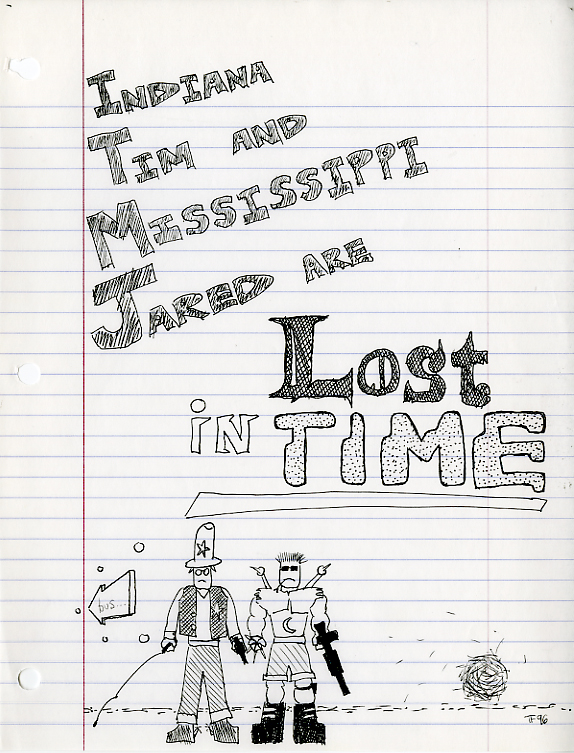 INDIANA
TIM AND
MISSISSIPPI
JARED ARE
LOST
IN TIME
bus...
TF 96